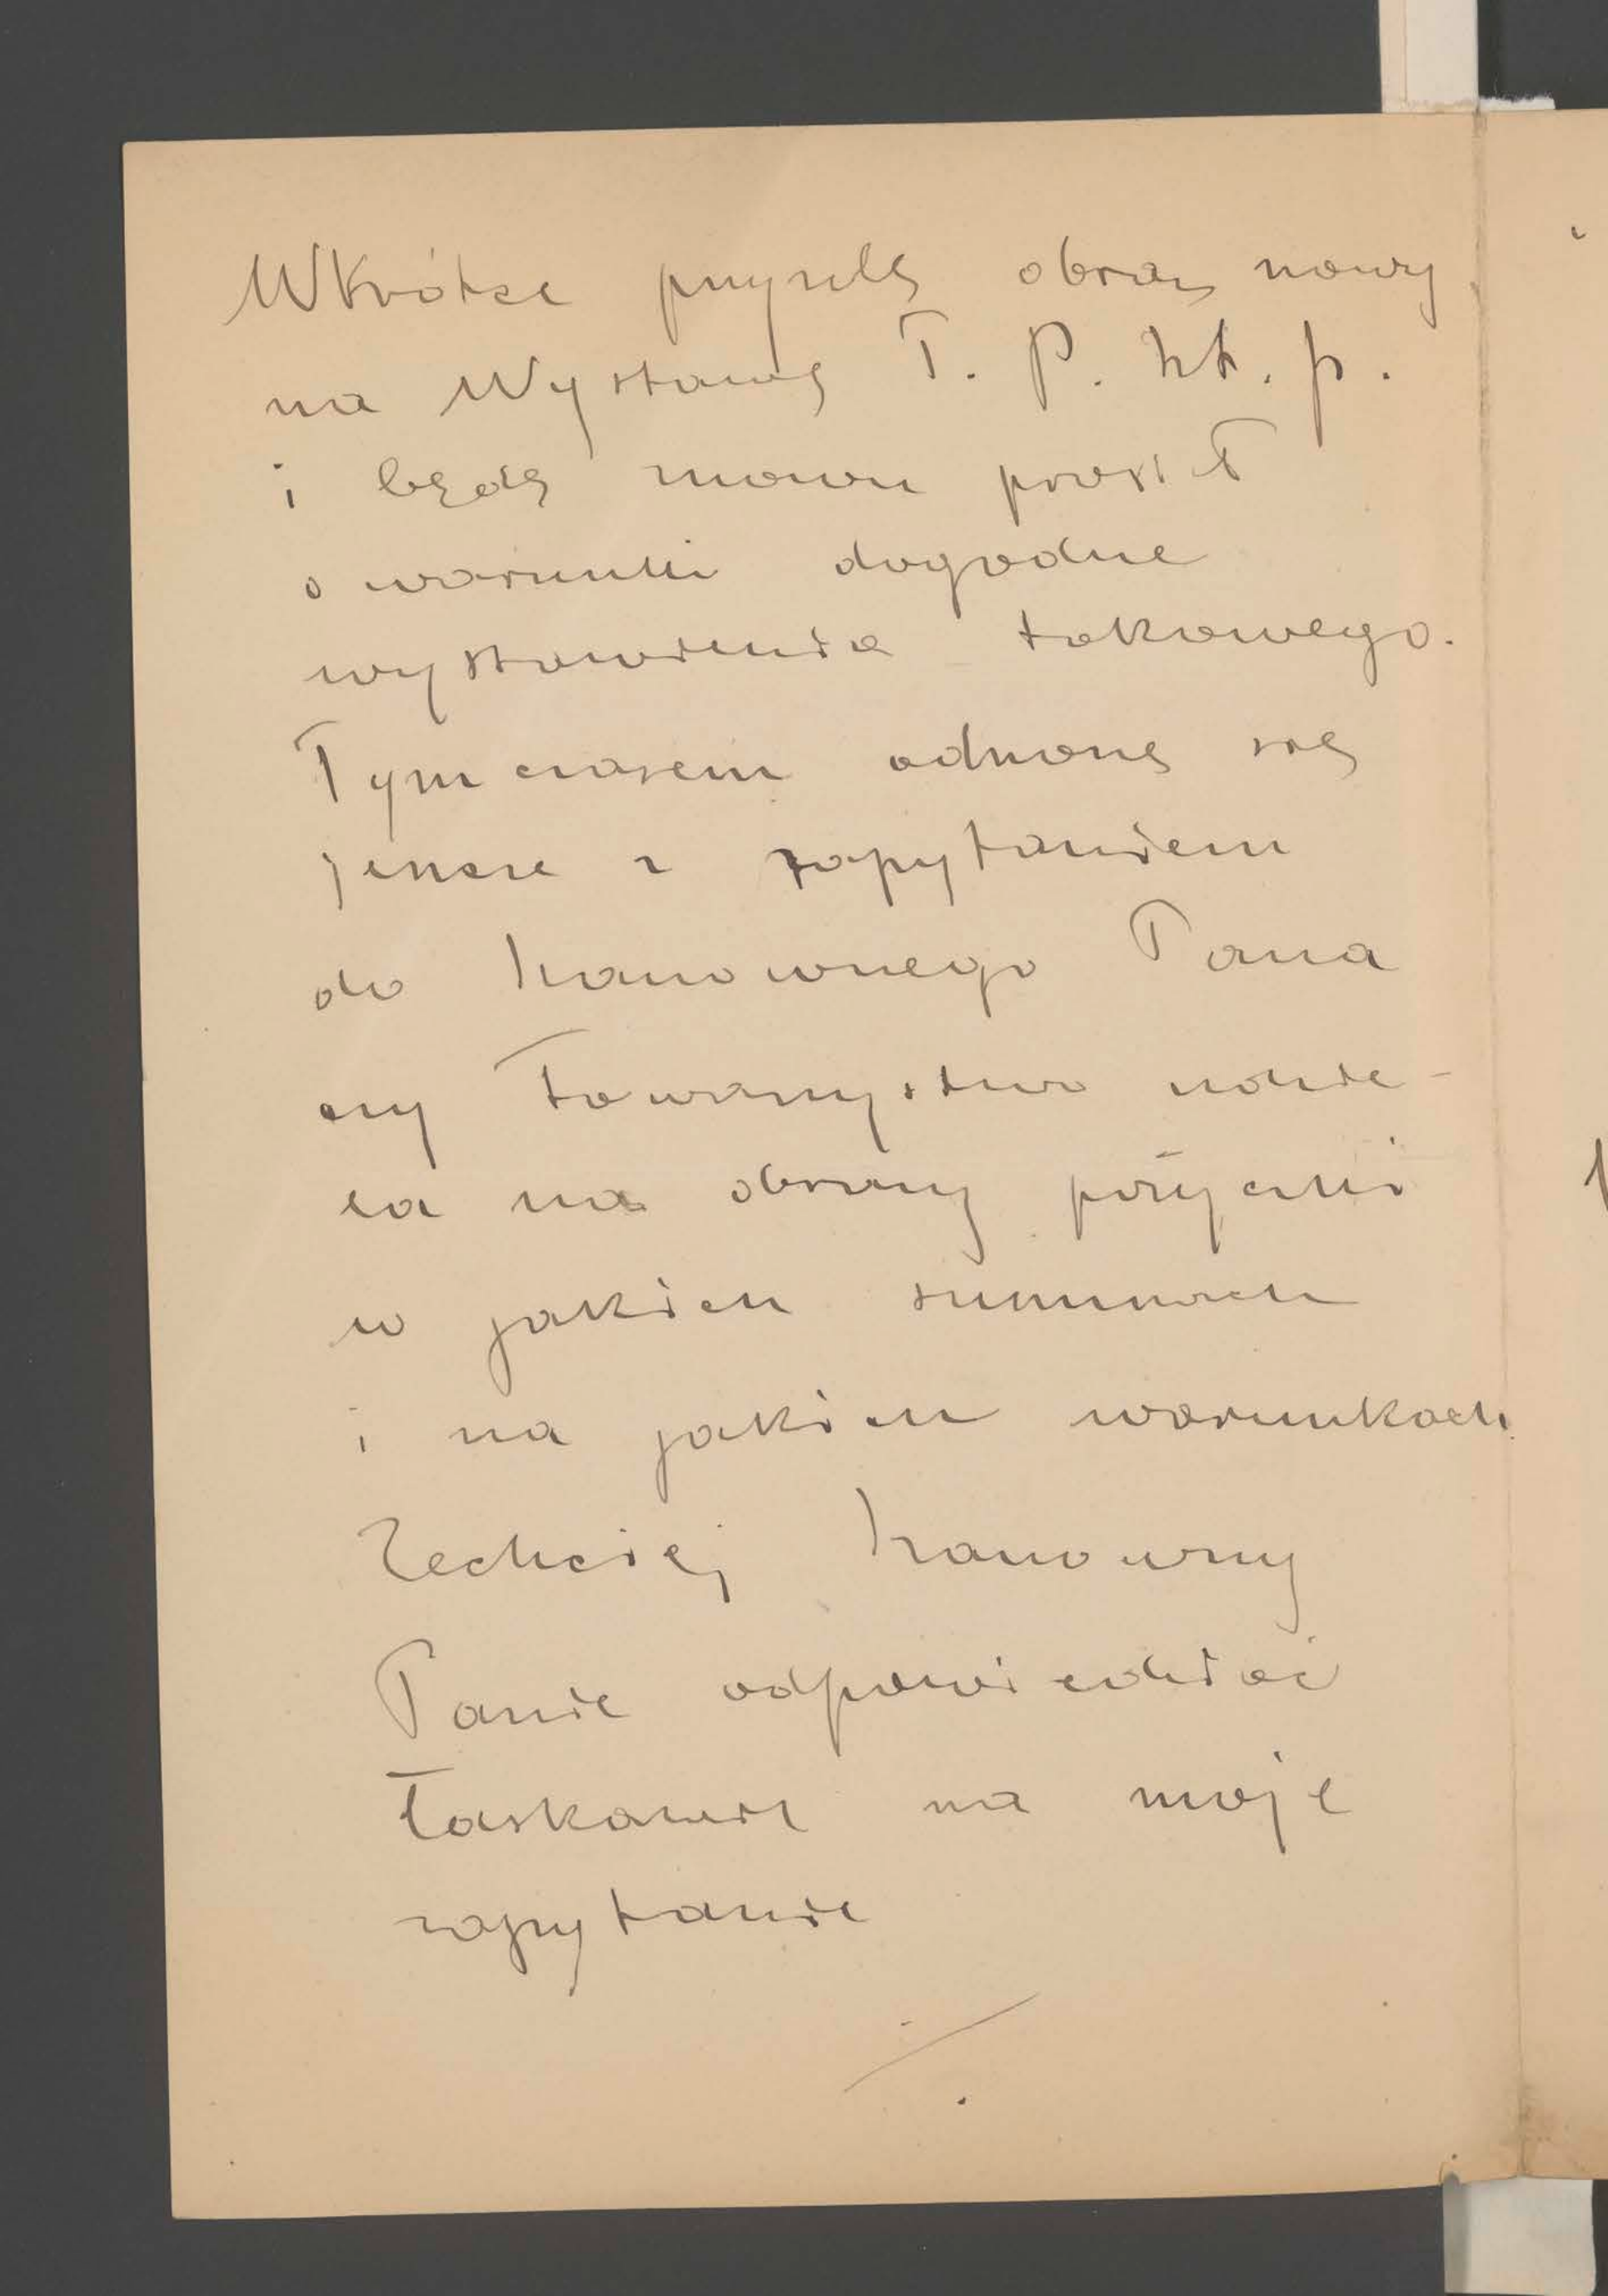 Wkrótce przyszlę obraz nowy
na Wystawę T. P. Szt. p.
i będę znowu prosił
o warunki dogodne
wystawienia takowego.
Tymczasem odnoszę się
jeszcze z zapytaniem
do Szanownego Pana
czy Towarzystwo udzie-
la na obrazy pożyczki
w jakich summach
i na jakich warunkach
Zechciej Szanowny
Panie odpowiedzieć
łaskawie na moje
zapytanie